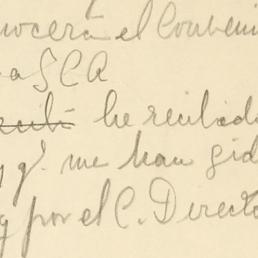 nocerá el Conveni
a SCA
recibí he recibido
y q' me han sid
y por el C. Directo